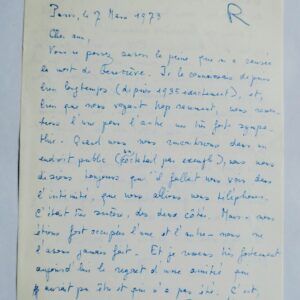 Paris, le 7 Mars 1973
R
Cher ami,
Vous ne pouvez savoir la peine que m'a causée
la mort de Geneviève. Je la connaissais depuis
bien longtemps (depuis 1935 exactement), et,
bien que nous voyant trop rarement, nous ressen-
tions l'un pour l'autre une très forte sympa-
thie. Quand nous nous rencontrions dans un
endroit public (par exemple), nous nous
disions toujours qu'il fallait nous voir dans
l'intimité, que nous allions nous téléphoner.
C'était très sincère, des deux côtés. Mais nous
étions fort occupés l'une et l'autre - nous ne
l'avons jamais fait. Et je ressens très fortement
aujourd'hui le regret d'une amitié qui
aurait pu être et qui n'a pas été. C'est,